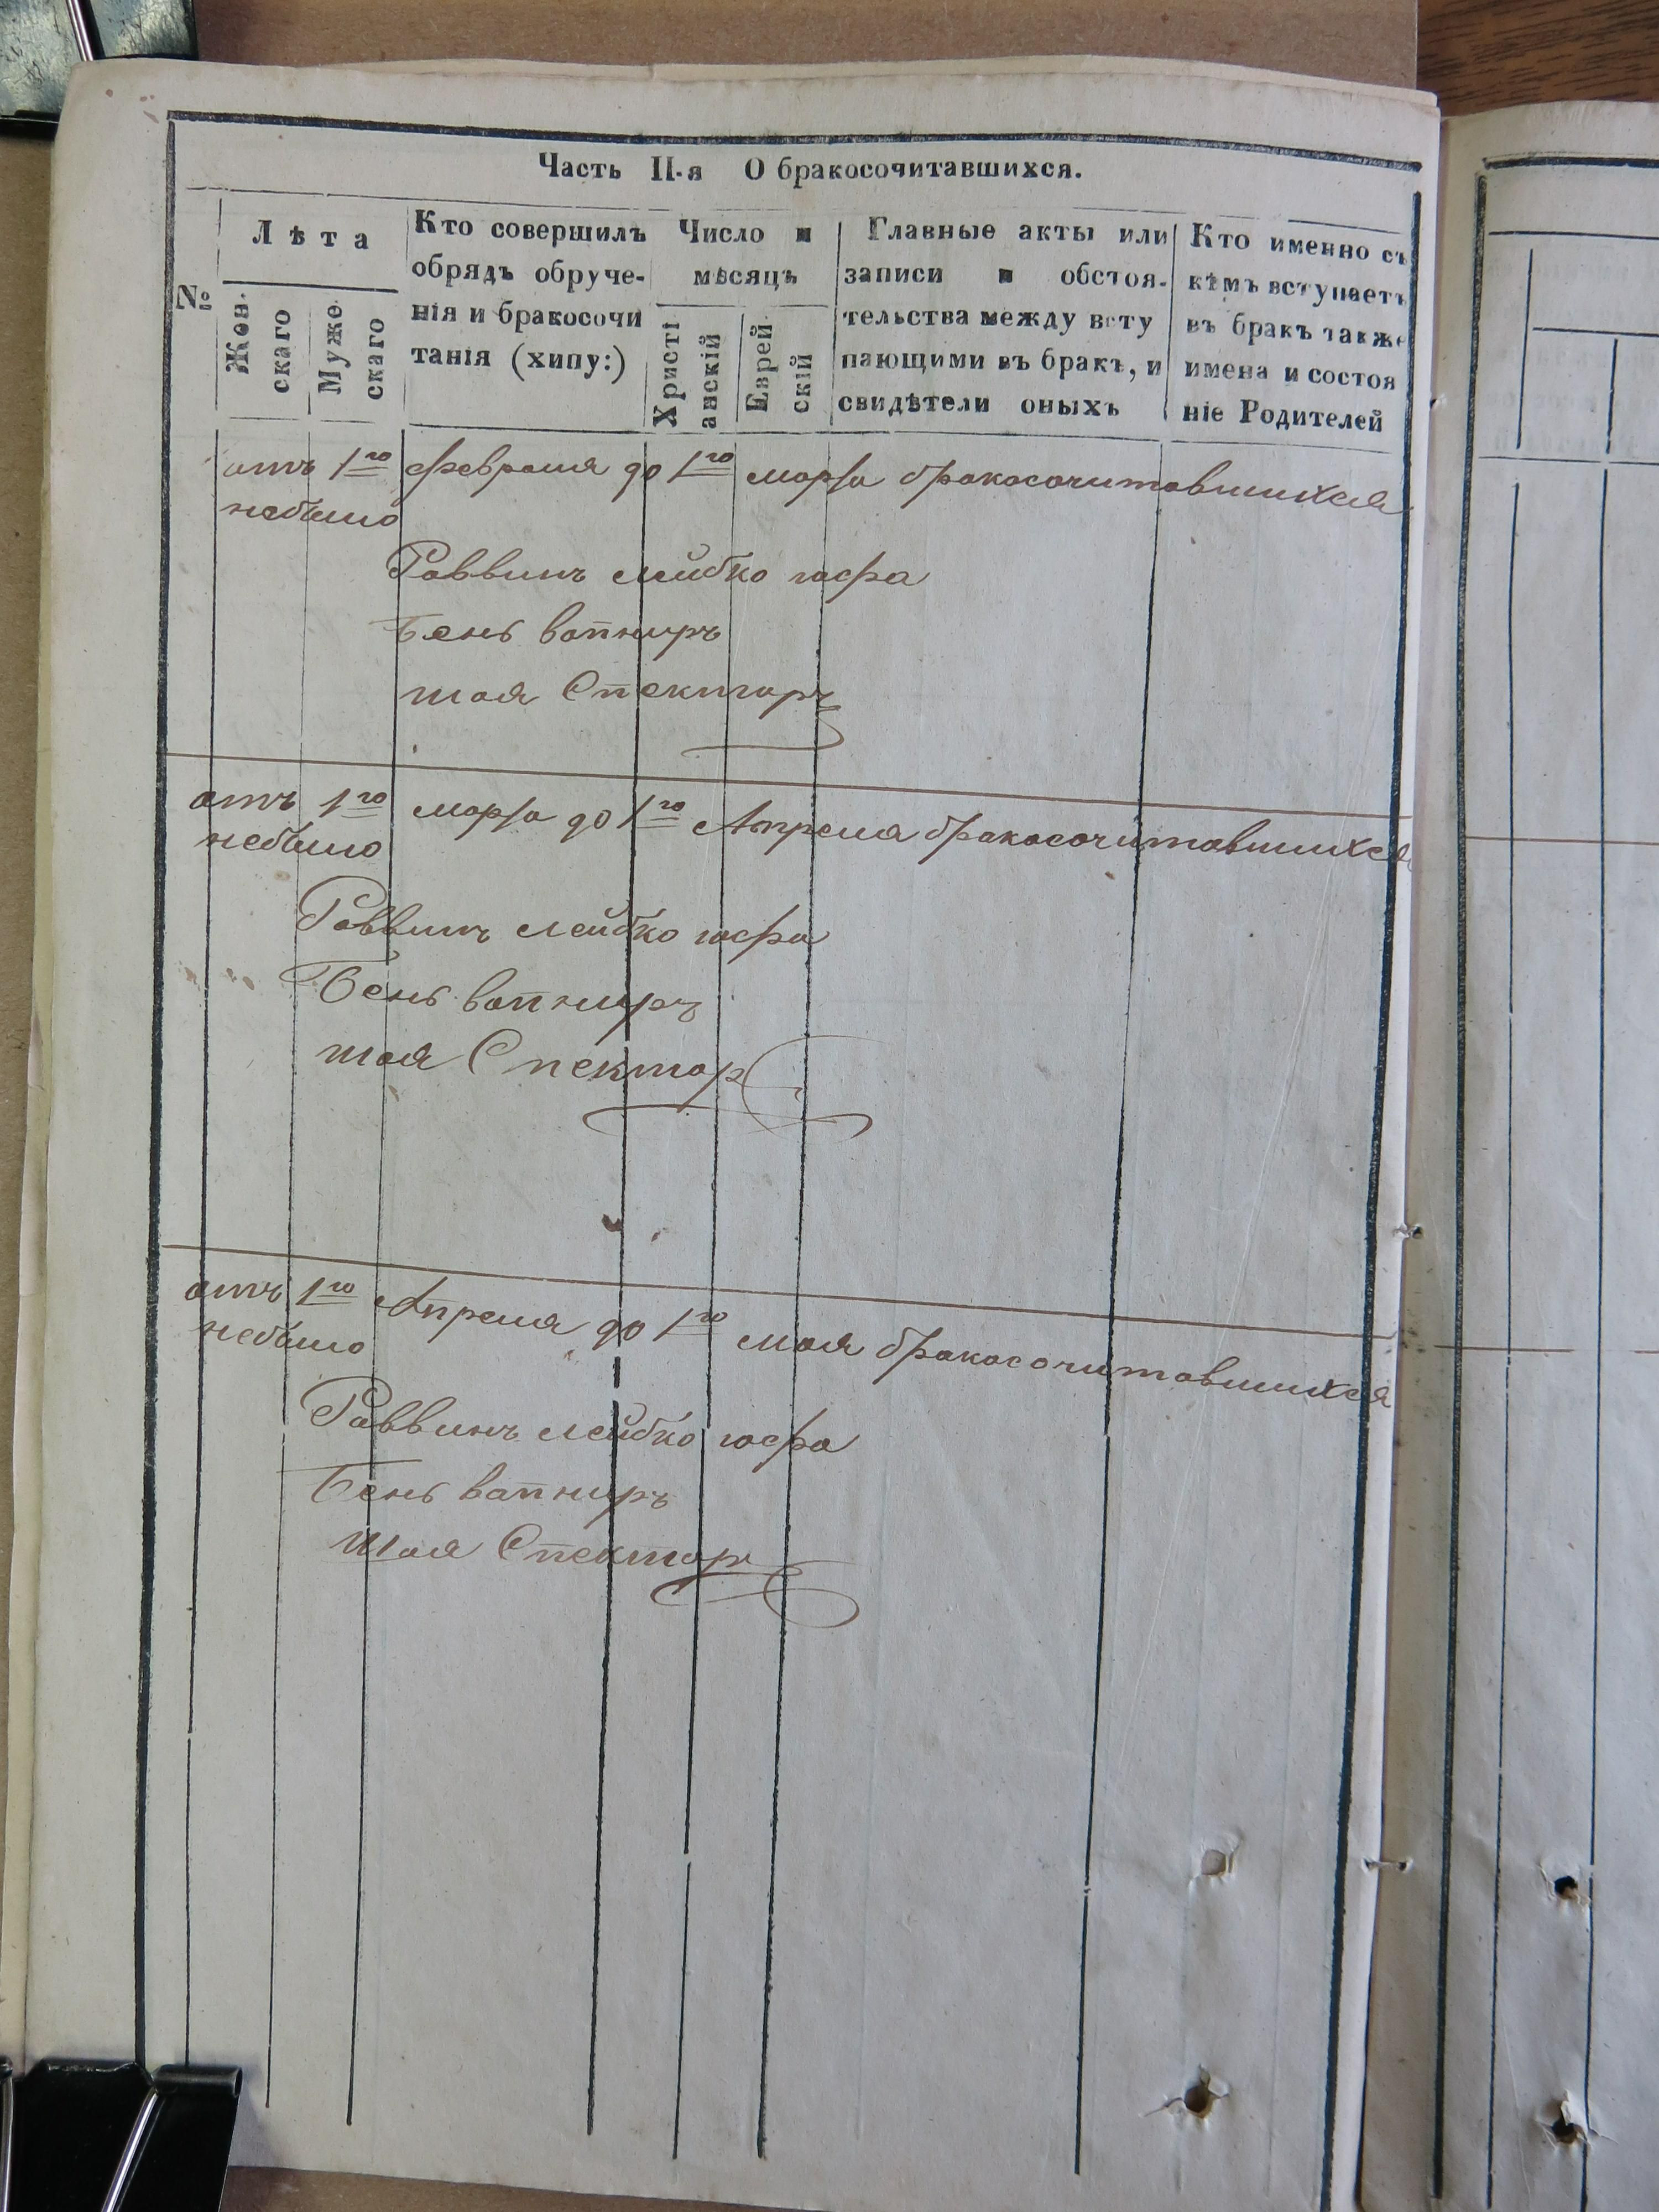 Часть II-я О бракосочитавшихся.
№
Лѣта
Жен-
скаго
Муже-
скаго
Кто совершилъ
обрядъ обруче-
нія и бракосочи
танія (хипу:)
Число и
мѣсяцъ
Христі
анскій
Еврей-
скій
Главные акты или
записи и обстоя-
тельства между всту
пающими въ бракъ, и
свидѣтели оныхъ
Кто именно съ
кѣмъ вступаетъ
въ бракъ также
имена и состоя
ніе Родителей
отъ 1го февраля до 1го марта бракосочитавшихся
небыло
Раввинъ лейбко
Бень вапниръ
шая Спекторъ
отъ 1го марта до 1го Апреля бракосочитавшихся
небыло
Раввинъ лейбко
Бень вапниръ
шая Спектор
отъ 1го Апреля до 1го мая бракосочитавшихся
небыло
Раввинъ лейбко
Бень вапниръ
шая Спектор